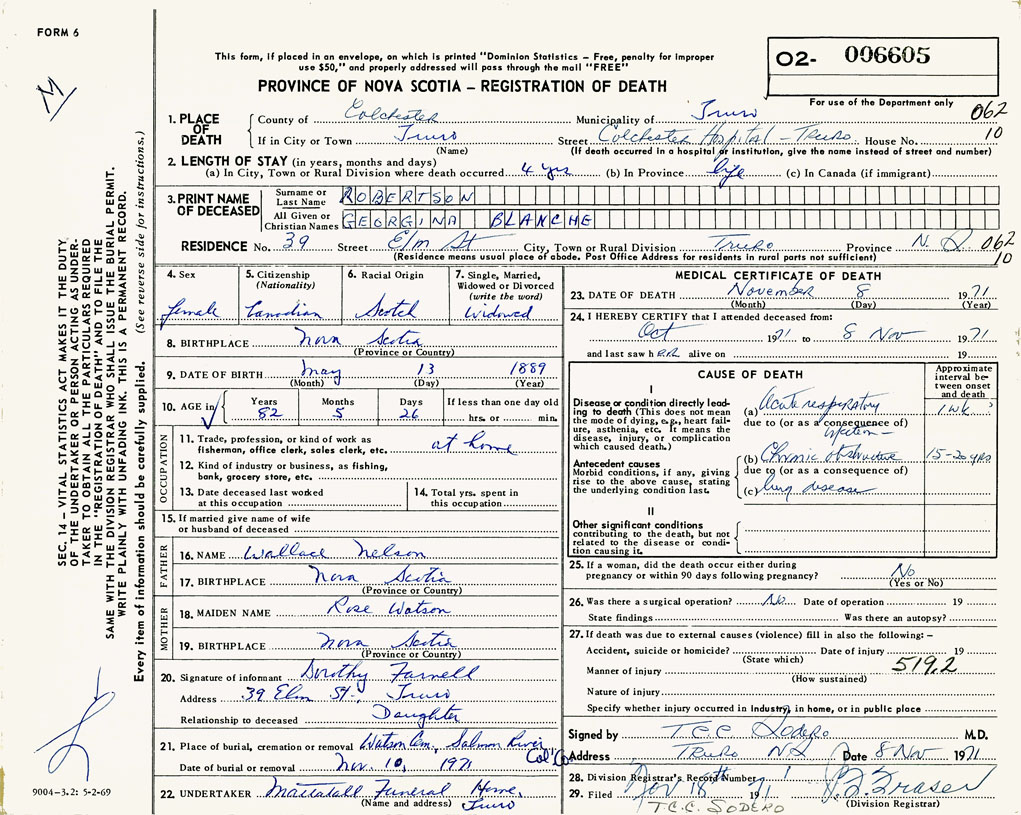 FORM 6
This form, if placed in an envelope, on which is printed "Dominion Statistics – Free, penalty for improper
use $50," and properly addressed will pass through the mail "FREE"
O2- 006605
PROVINCE OF NOVA SCOTIA – REGISTRATION OF DEATH
For use of the Department only
1. PLACE OF DEATH
County of Colchester Municipality of Truro 062
If in City or Town Truro Street Colchester Hospital – Truro House No. 10
(Name) (If death occurred in a hospital or institution, give the name instead of street and number)
2. LENGTH OF STAY (in years, months and days)
(a) In City, Town or Rural Division where death occurred 4 yrs (b) In Province life (c) In Canada (if immigrant)
3. PRINT NAME OF DECEASED
Surname or Last Name ROBERTSON
All Given or Christian Names GEORGINA BLANCHE
RESIDENCE No. 39 Street Elm St City, Town or Rural Division Truro Province N.S. 062
(Residence means usual place of abode. Post Office Address for residents in rural parts not sufficient) 10
4. Sex
female
5. Citizenship
(Nationality)
Canadian
6. Racial Origin
Scotch
7. Single, Married,
Widowed or Divorced
(write the word)
Widowed
8. BIRTHPLACE Nova Scotia
(Province or Country)
9. DATE OF BIRTH May 13 1889
(Month) (Day) (Year)
10. AGE in
Years Months Days If less than one day old
82 5 26 hrs. or min.
OCCUPATION
11. Trade, profession, or kind of work as
fisherman, office clerk, sales clerk, etc. at home
12. Kind of industry or business, as fishing,
bank, grocery store, etc.
13. Date deceased last worked
at this occupation
14. Total yrs. spent in
this occupation
15. If married give name of wife
or husband of deceased
FATHER
16. NAME Wallace Nelson
17. BIRTHPLACE Nova Scotia
(Province or Country)
MOTHER
18. MAIDEN NAME Rose Watson
19. BIRTHPLACE Nova Scotia
(Province or Country)
20. Signature of informant Dorothy Farnell
Address 39 Elm St., Truro
Relationship to deceased Daughter
21. Place of burial, cremation or removal Watson Cem., Salmon River
Col. Co.
Date of burial or removal Nov. 10, 1971
22. UNDERTAKER Mattatall Funeral Home,
(Name and address) Truro
MEDICAL CERTIFICATE OF DEATH
23. DATE OF DEATH November 8 1971
(Month) (Day) (Year)
24. I HEREBY CERTIFY that I attended deceased from:
Oct 1971 to 8 Nov 1971
and last saw her alive on 19
CAUSE OF DEATH
Approximate
interval be-
tween onset
and death
I
Disease or condition directly lead-
ing to death (This does not mean
the mode of dying, e.g., heart fail-
ure, asthenia, etc. It means the
disease, injury, or complication
which caused death.)
(a) Acute respiratory 1 wk
due to (or as a consequence of)
infection –
Antecedent causes
Morbid conditions, if any, giving
rise to the above cause, stating
the underlying condition last.
(b) Chronic obstructive 15-20 yrs
due to (or as a consequence of)
(c) lung disease
II
Other significant conditions
contributing to the death, but not
related to the disease or condi-
tion causing it.
25. If a woman, did the death occur either during
pregnancy or within 90 days following pregnancy? No
(Yes or No)
26. Was there a surgical operation? No Date of operation 19
State findings Was there an autopsy?
27. If death was due to external causes (violence) fill in also the following: –
Accident, suicide or homicide? Date of injury 19
(State which)
519.2
Manner of injury
(How sustained)
Nature of injury
Specify whether injury occurred in industry, in home, or in public place
Signed by T.C.C. Sodero M.D.
Address Truro NS Date 8 Nov 1971
28. Division Registrar's Record Number
29. Filed Nov 18 1971
(Division Registrar)
T.C.C. SODERO
SEC. 14 – VITAL STATISTICS ACT MAKES IT THE DUTY
OF THE UNDERTAKER OR PERSON ACTING AS UNDER-
TAKER TO OBTAIN ALL THE PARTICULARS REQUIRED
IN THE "REGISTRATION OF DEATH" AND TO FILE THE
SAME WITH THE DIVISION REGISTRAR WHO SHALL ISSUE THE BURIAL PERMIT.
WRITE PLAINLY WITH UNFADING INK. THIS IS A PERMANENT RECORD.
Every item of information should be carefully supplied. (See reverse side for instructions.)
9004-3.2: 5-2-69